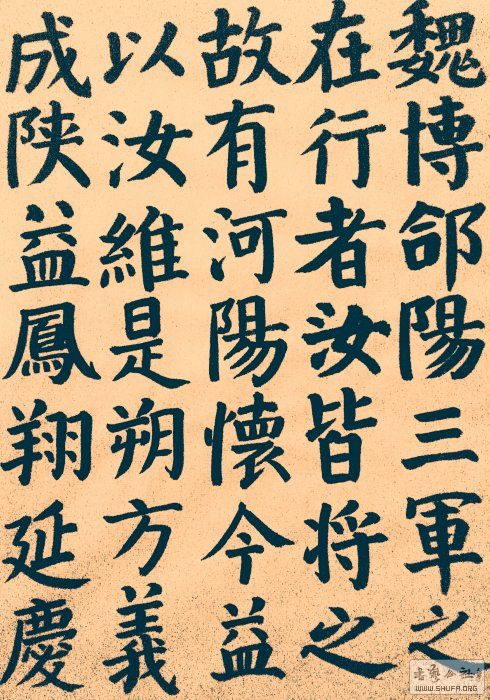 魏博郃陽三軍之
在行者汝皆将之
故有河陽懷今益
以汝維是朔方義
成陕益鳳翔延慶
书艺公社
WWW.SHUFA.ORG